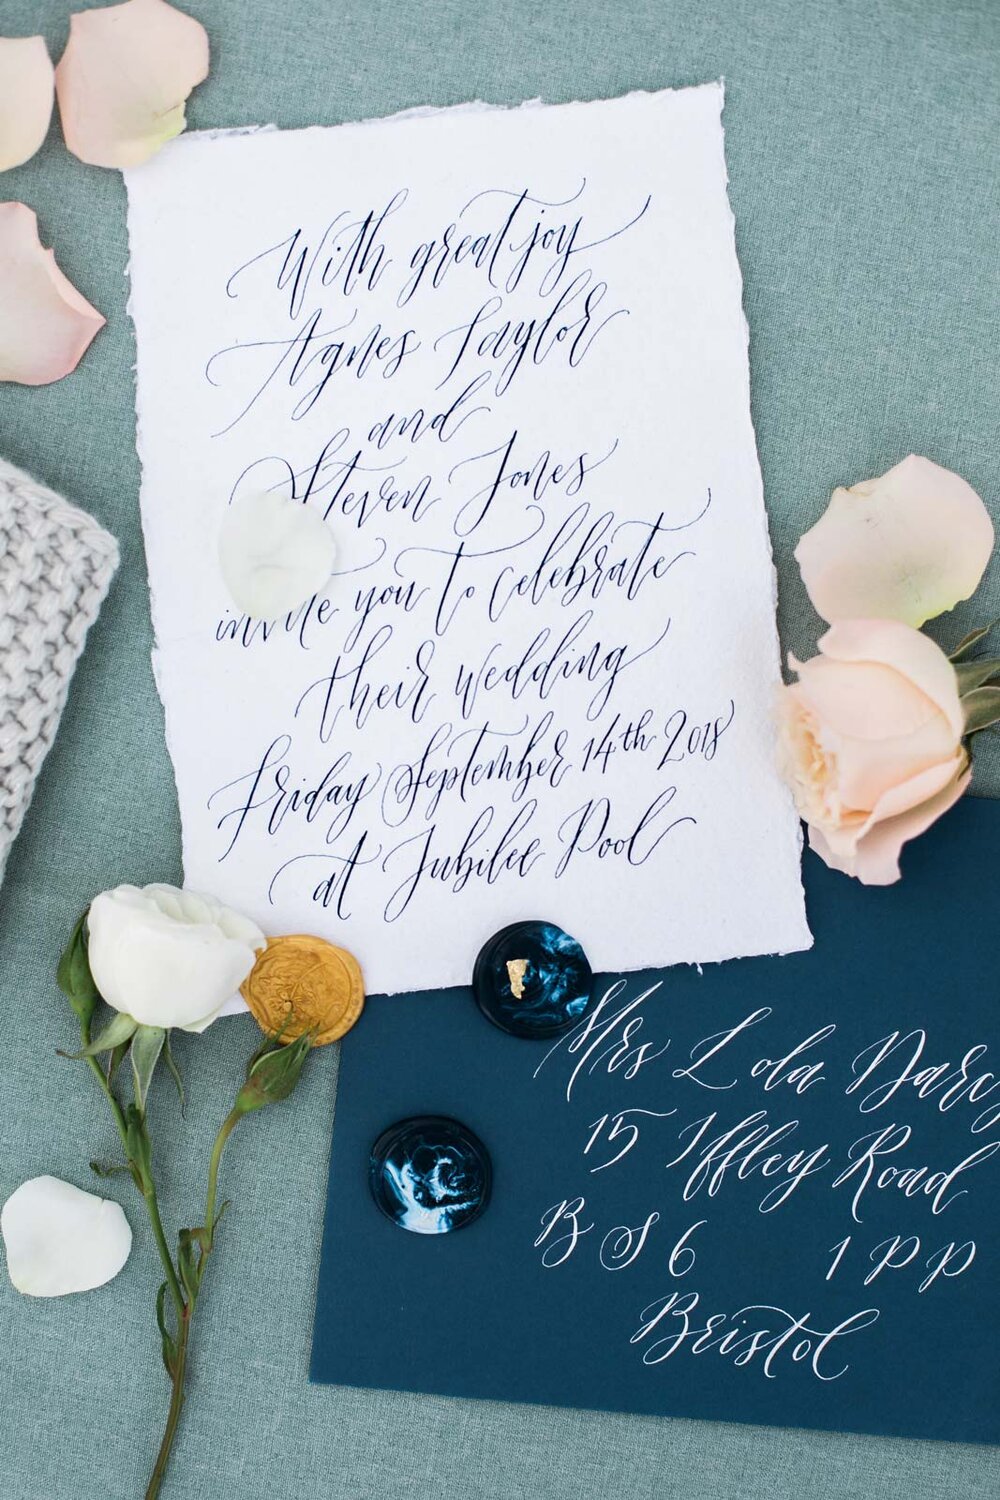 With great joy
Agnes Taylor
and
Steven Jones
invite you to celebrate
their wedding
Friday September 14th 2018
at Jubilee Pool
Mrs Lola Darcy
15 Iffley Road
BS6 1PP
Bristol